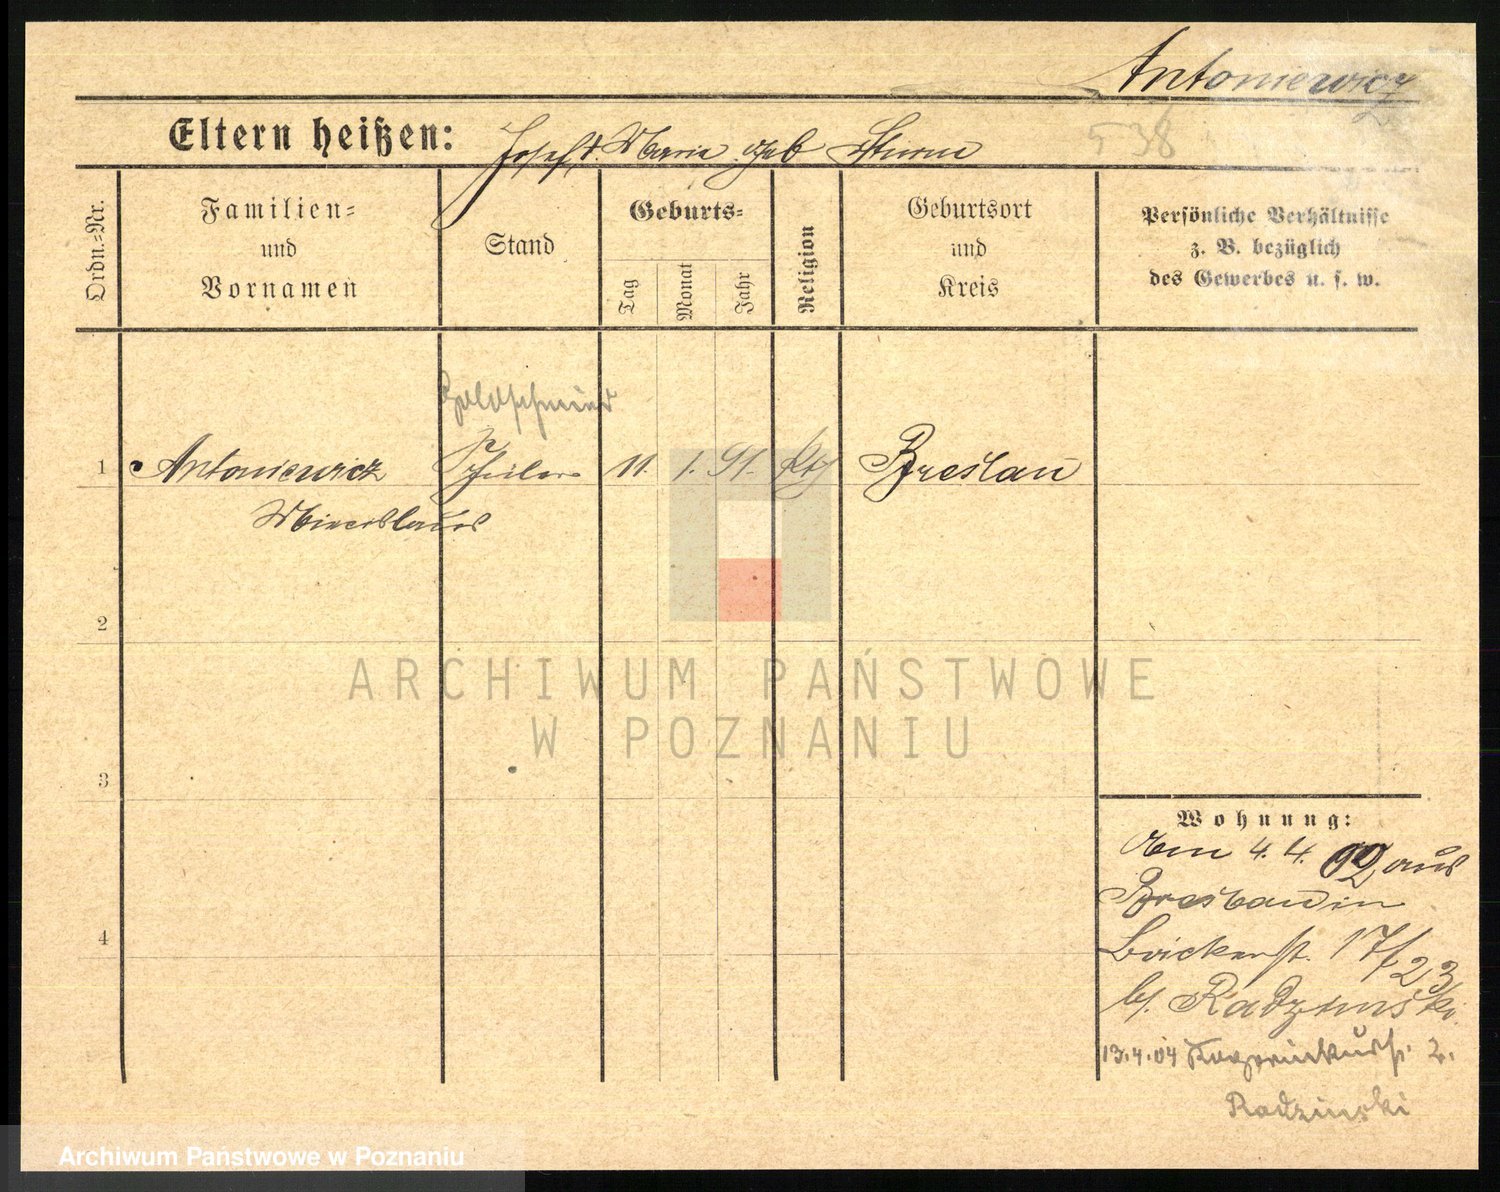 Antoniewicz
Eltern heißen: Josef & Maria geb Sturm
538
Ordn.=Nr.
Familien=
und
Vornamen
Stand
Geburts=
Tag
Monat
Jahr
Religion
Geburtsort
und
Kreis
Persönliche Verhältnisse
z. B. bezüglich
des Gewerbes u. s. w.
Goldschmied
1 Antoniewicz Schüler 11. 1. 91. kth Breslau
Miecislaus
2
ARCHIWUM PAŃSTWOWE
W POZNANIU
3
Wohnung:
Am 4. 4. 02 aus
Breslau in
4
17/23
b/. Radzinski
13.4.04 2.
Radzinski
Archiwum Państwowe w Poznaniu